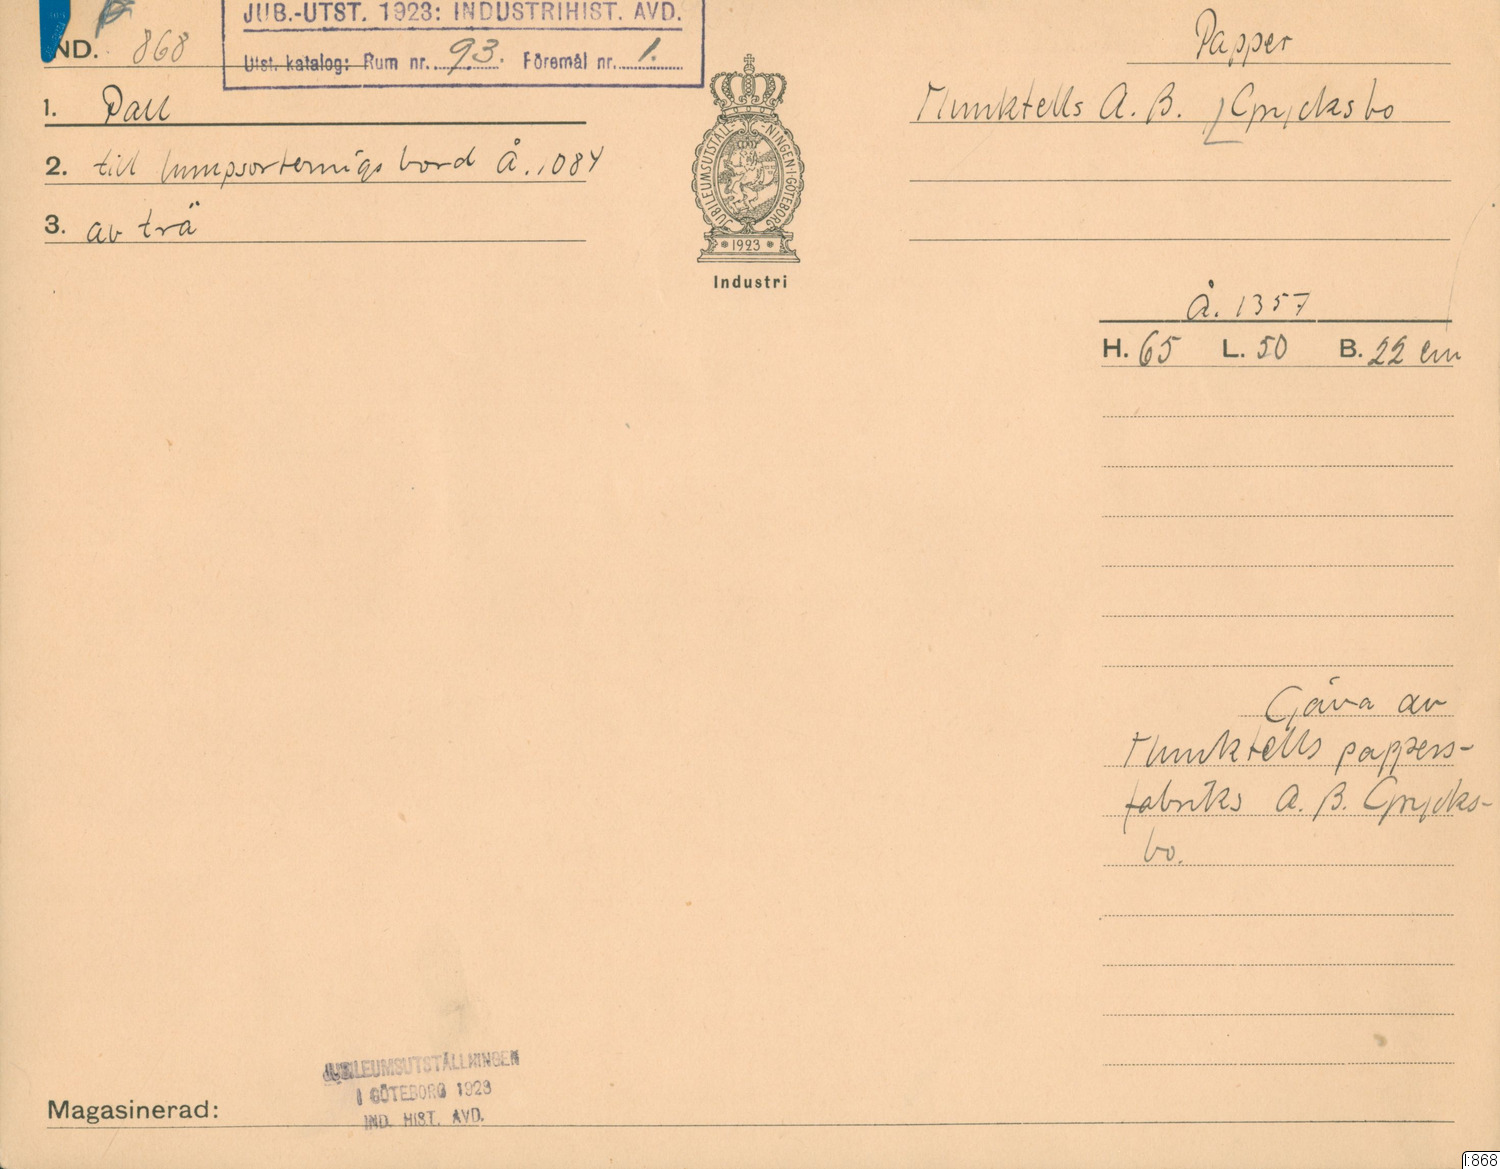 JUB.-UTST. 1923: INDUSTRIHIST. AVD.
Utst. katalog: Rum nr. 93. Föremål nr. 1.
IND. 868
Papper
1. Pall
Munktells A.B. Grycksbo
2. till lumpsorternigs bord Å. 1084
3. av trä
JUBILEUMSUTSTÄLL-NINGEN·I·GÖTEBORG
* 1923 *
Industri
Å. 1357
H. 65 L. 50 B. 22 cm
Gåva av
Munktells pappers-
fabriks A.B. Grycks-
bo.
JUBILEUMSUTSTÄLLNINGEN
I GÖTEBORG 1923
IND. HIST. AVD.
Magasinerad:
I:868